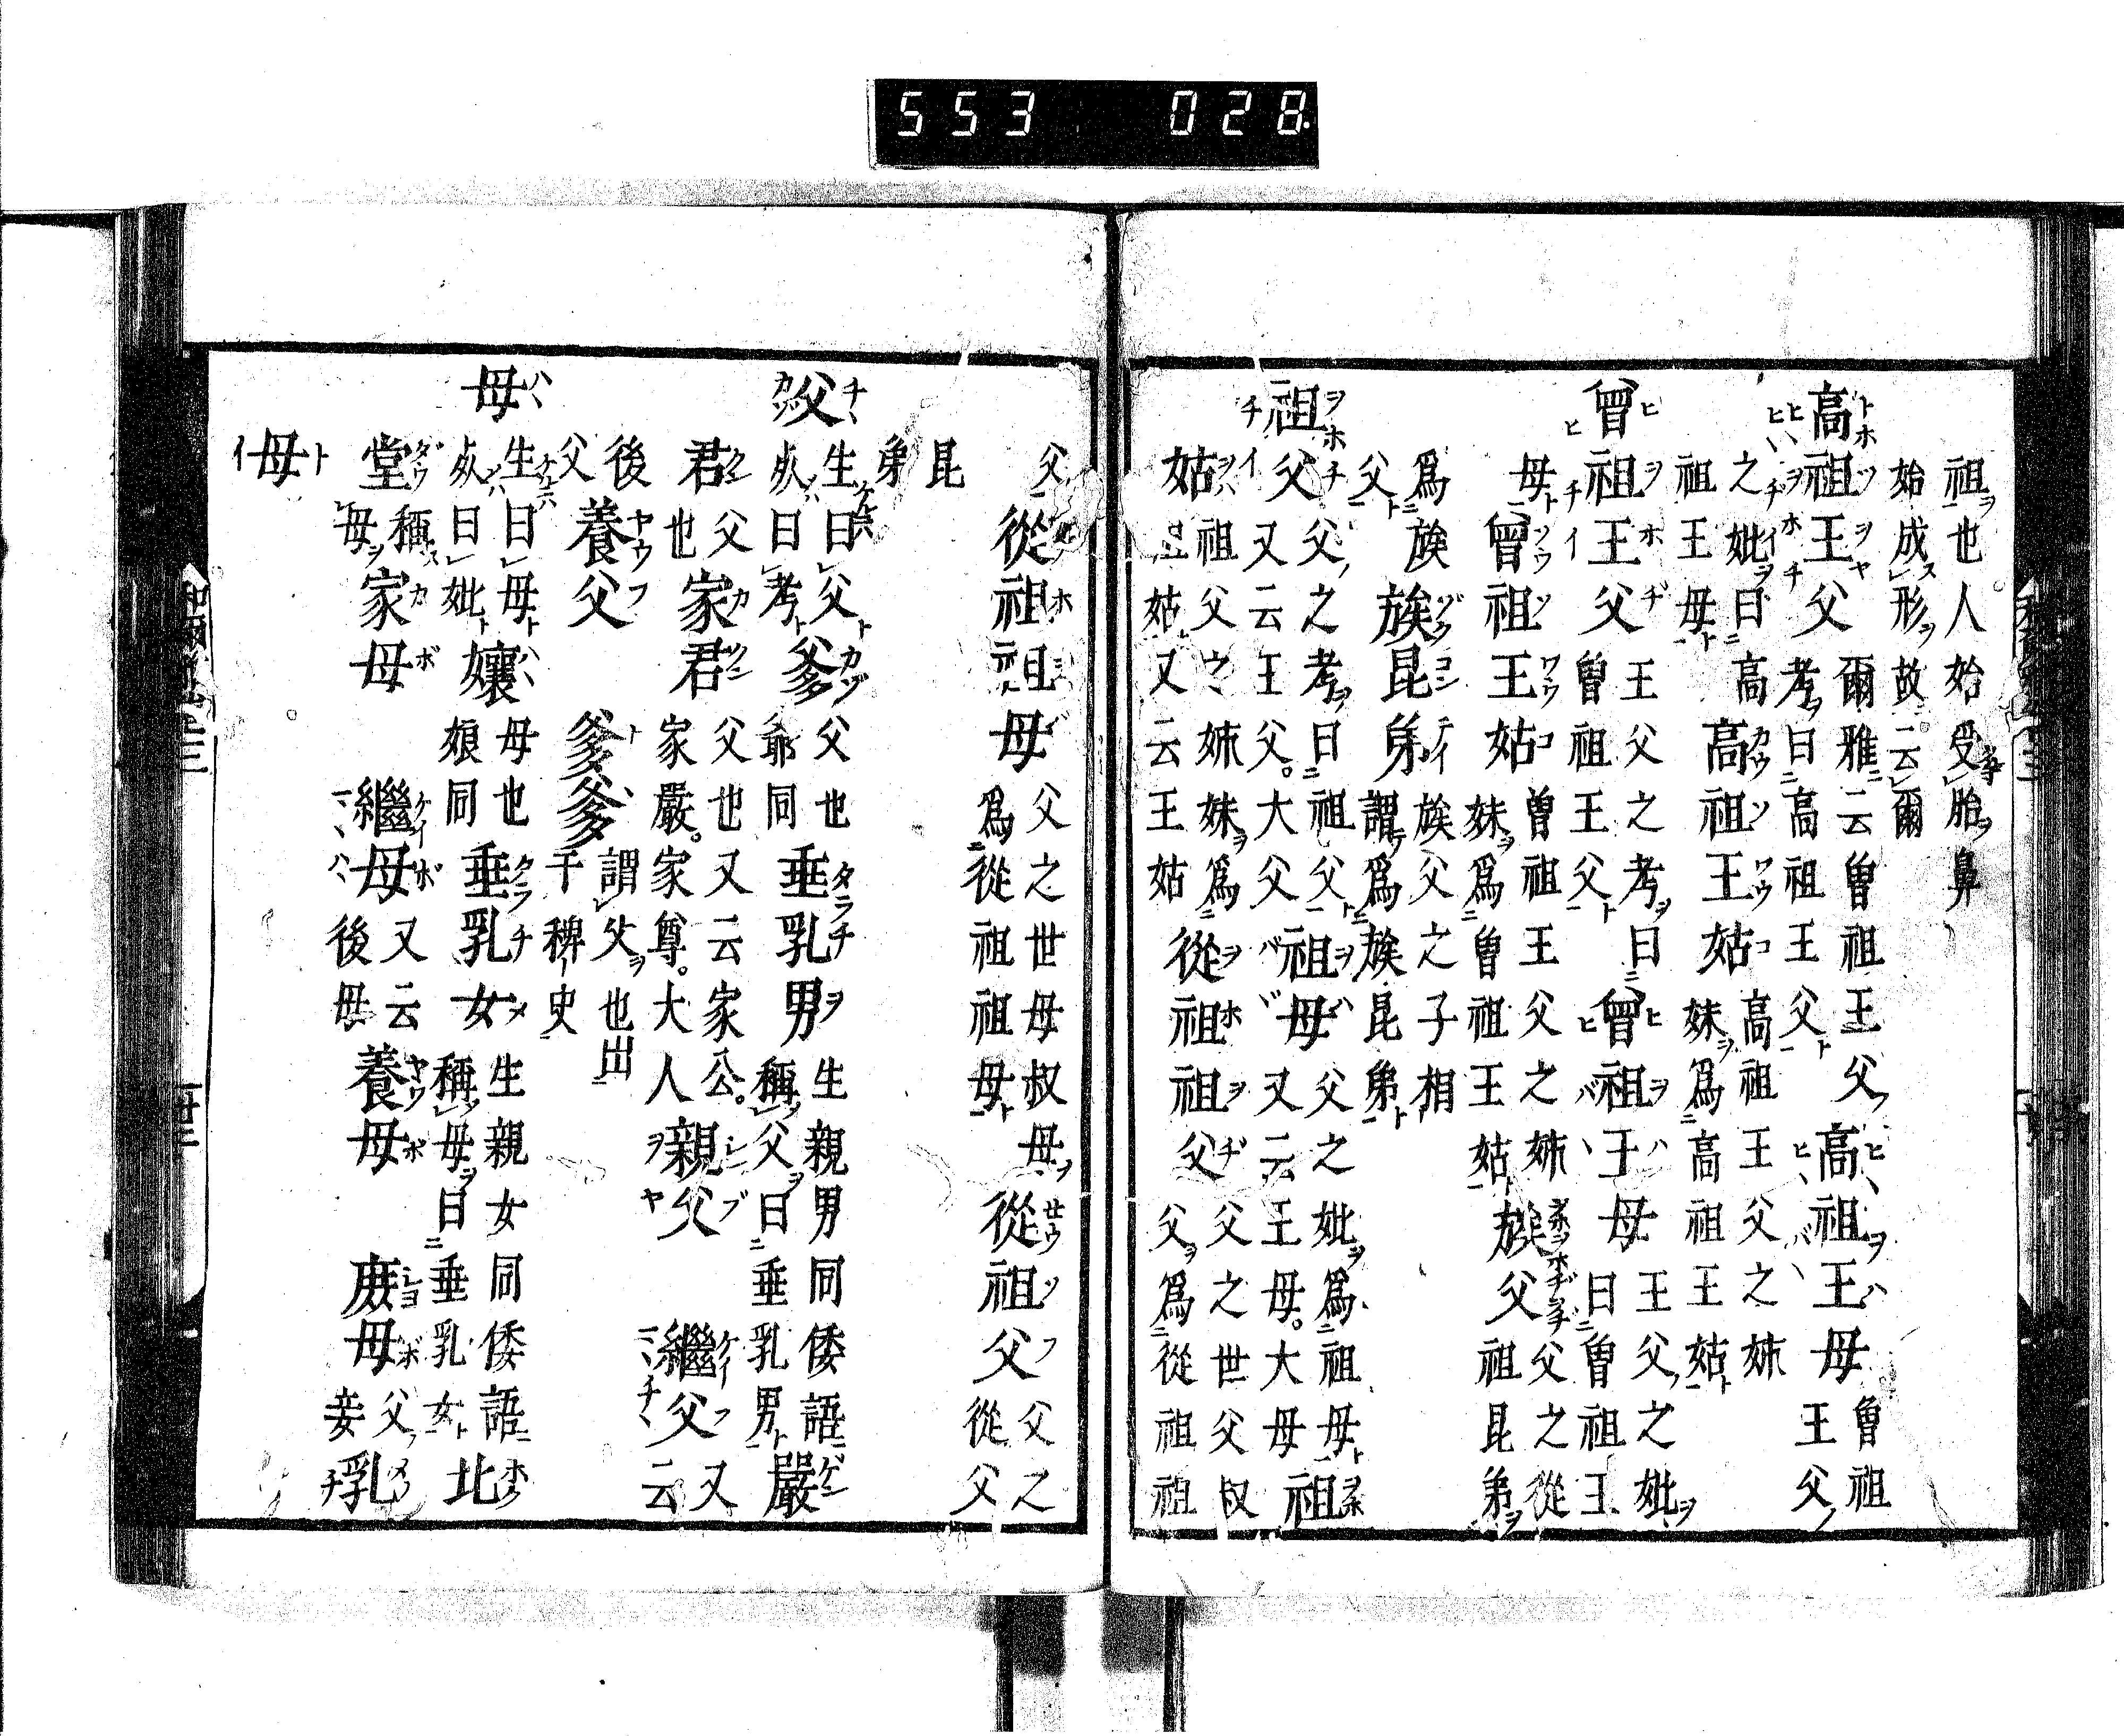 553 028
祖也人始受胎鼻
始成形故云爾
高祖王父 爾雅云曾祖王父
考曰高祖王父 高祖王母 曾祖王父
之妣曰高祖王母 高祖王姑 高祖王父之姊妹爲高祖王姑
曾祖王父 王父之考曰曾祖王父 曾祖王母 王父之妣曰曾祖王母
曾祖王姑 曾祖王父之姊妹爲曾祖王姑 族父 父之從祖昆弟
爲族父 族昆弟 族父之子相謂爲族昆弟
祖父 父之考曰祖父又云王父大父 祖母 父之妣爲祖母又云王母大母 祖
姑 祖父之姊妹爲 姑又云王姑 從祖祖父 父之世父叔父爲從祖祖
父 從祖祖母 父之世母叔母爲從祖祖母 從祖父 父之從父
昆弟
父 生曰父死曰考 爹 父也爺同 垂乳男 生親男同倭語稱父曰垂乳男 嚴
君 父也 家君 父也又云家公家嚴家尊大人 親父 繼父 又云
後父 養父 爹爹 謂父也出于稗史
母 生曰母死曰妣 孃 母也娘同 垂乳女 生親女同倭語稱母曰垂乳女 北
堂 稱母 家母 繼母 又云後母 養母 庶母 父妾 乳
母